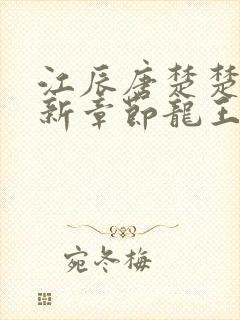 江辰唐楚楚
新章節龍王
宛冬梅